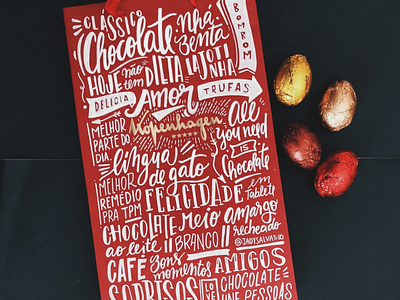 CLÁSSICO
Chocolate
Nhá
Benta
BOMBOM
HOJE não tem DIETA LAJOTINHA
DELÍCIA Amor TRUFAS
MELHOR PARTE DO DIA
Kopenhagen
All you need IS Chocolate
língua de gato
MELHOR REMÉDIO PRA TPM
FELICIDADE
em Tablete
CHOCOLATE ao leite
meio amargo
BRANCO
recheado
@JADYSALVATICO
CAFÉ
bons momentos
AMIGOS
SORRISOS
LOVE
CHOCOLATE UNE PESSOAS